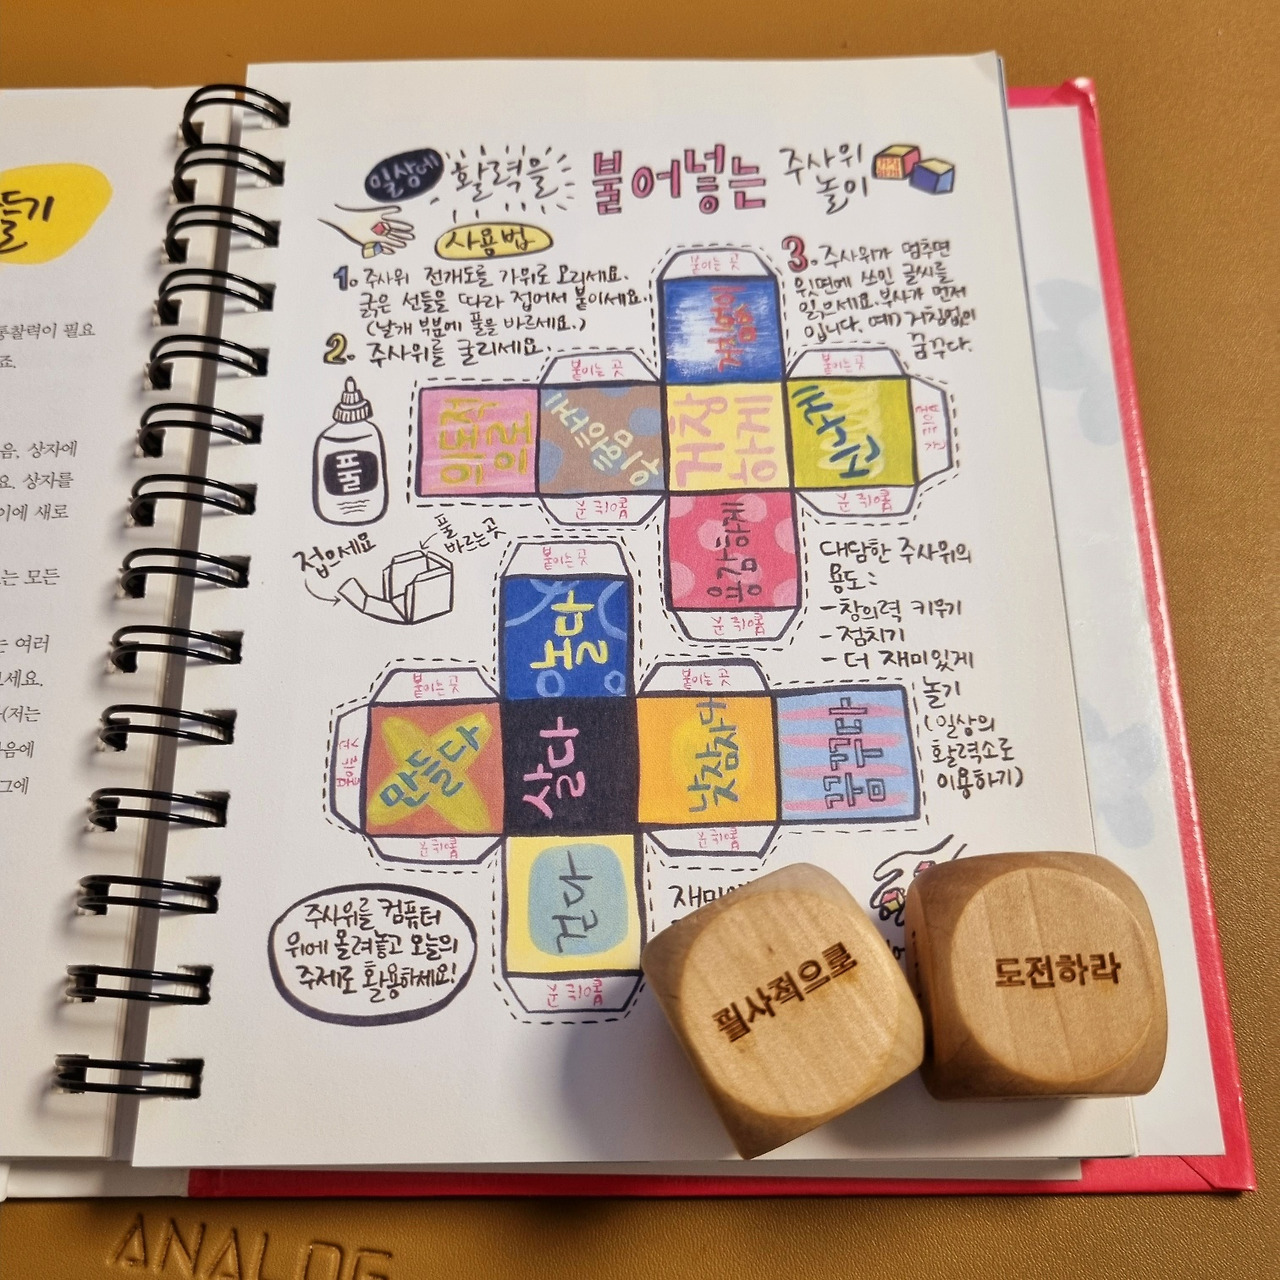 들기
통찰력이 필요
죠.
음, 상자에
요. 상자를
이에 새로
는 모든
는 여러
세요.
(저는
음에
그에
일상에 활력을 불어넣는 주사위 놀이
사용법
1. 주사위 전개도를 가위로 오리세요.
굵은 선들을 따라 접어서 붙이세요.
(날개 부분에 풀을 바르세요.)
2. 주사위를 굴리세요.
3. 주사위가 멈추면
윗면에 쓰인 글씨를
읽으세요. 부사가 먼저
입니다. 예) 거침없이
꿈꾸다.
붙이는 곳
거침없이
붙이는 곳
붙이는 곳
의도적
으로
거장
하게
붙이는 곳
붙이는 곳
붙이는 곳
용감하게
붙이는 곳
풀
접으세요
풀
바르는 곳
대담한 주사위의
용도:
- 창의력 키우기
- 점치기
- 더 재미있게
놀기
(일상의
활력소로
이용하기)
붙이는 곳
놀다
붙이는 곳
붙이는 곳
붙이는 곳
만들다
살다
낮잠자다
꿈꾸다
붙이는 곳
붙이는 곳
걷다
붙이는 곳
주사위를 컴퓨터
위에 올려놓고 오늘의
주제로 활용하세요!
필사적으로
도전하라
ANALOG